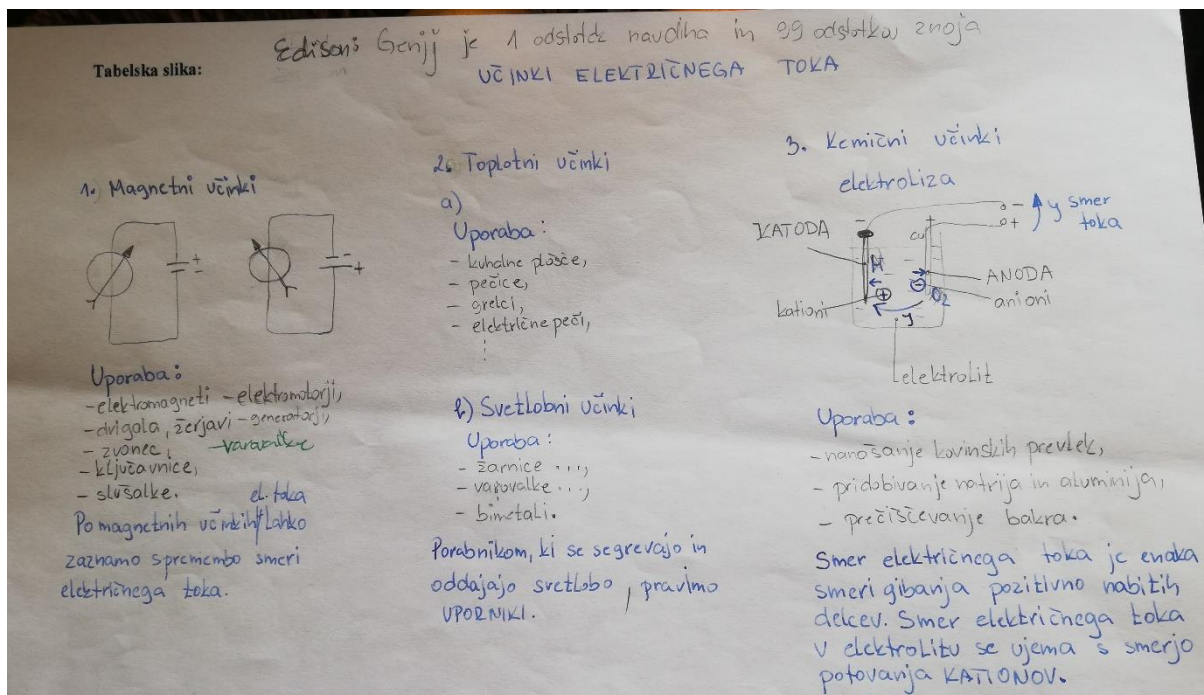 Edison: Genij je 1 odstotek navdiha in 99 odstotkov znoja
Tabelska slika:
UČINKI ELEKTRIČNEGA TOKA
1. Magnetni učinki
Uporaba:
- elektromagneti - elektromotorji,
- dvigala, žerjavi - generatorji,
- zvonec,
- ključavnice,
- slušalke.
el. toka
Po magnetnih učinkih lahko
zaznamo spremembo smeri
električnega toka.
2. Toplotni učinki
a)
Uporaba:
- kuhalne plošče,
- pečice,
- grelci,
- električne peči,
b) Svetlobni učinki
Uporaba:
- žarnice ...,
- varovalke ...,
- bimetali.
Porabnikom, ki se segrevajo in
oddajajo svetlobo, pravimo
UPORNIKI.
3. Kemični učinki
elektroliza
KATODA
- 
+
y smer
toka
Cu
H
ANODA
anioni
O2
kationi
y
elektrolit
Uporaba:
- nanašanje kovinskih prevlek,
- pridobivanje natrija in aluminija,
- prečiščevanje bakra.
Smer električnega toka je enaka
smeri gibanja pozitivno nabitih
delcev. Smer električnega toka
v elektrolitu se ujema s smerjo
potovanja KATIONOV.